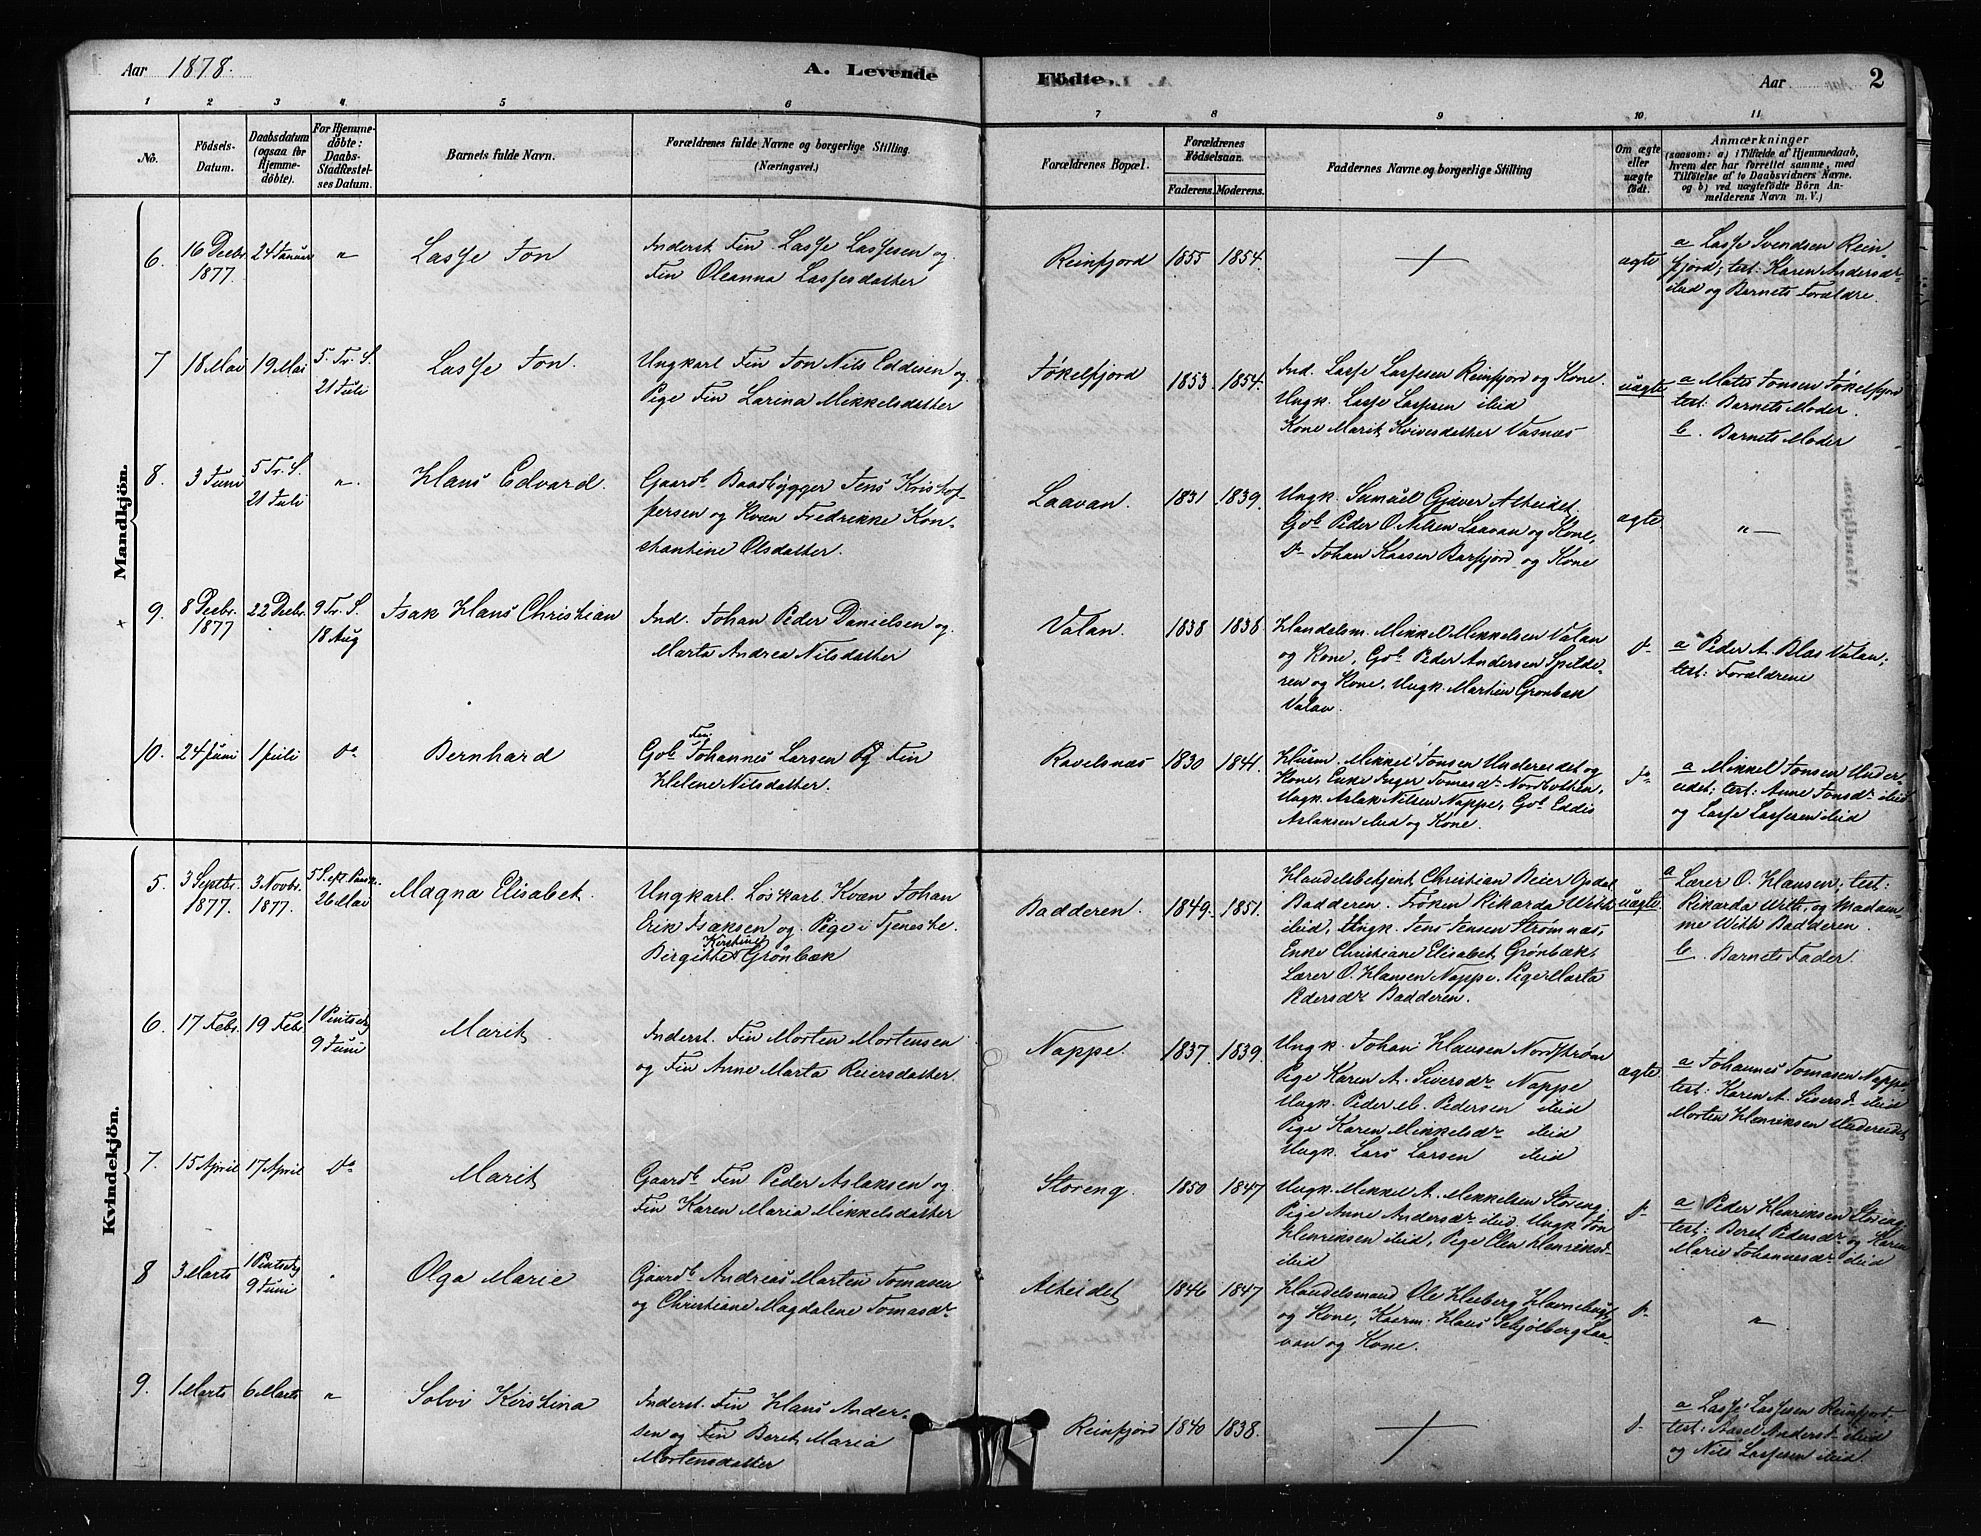 Aar 1878.
A. Levende
Födte.
Aar
2
1 2 3 4 5 6 7 8 9 10 11
No.
Födsels-
Datum.
Daabsdatum
(ogsaa for
Hjemme-
döbte).
For Hjemme-
döbte:
Daabs-
Stadfæstel-
ses Datum.
Barnets fulde Navn.
Forældrenes fulde Navne og borgerlige Stilling
(Næringsvei.)
Forældrenes Bopæl.
Forældrenes
Födselsaar.
Faderens. Moderens.
Faddernes Navne og borgerlige Stilling
Om ægte
eller
uægte
födt.
Anmærkninger
(saasom: a) i Tilfælde af Hjemmedaab,
hvem der har forrettet samme, med
Tilföielse af to Daabsvidners Navne.
og b) ved uægtefödte Börn An-
melderens Navn m. V.)
Mandkjön.
6.
16 Decbr
1877.
24 Januar
"
Lasse Jon
Inderst Fin Lasse Lassesen og
Fin Oleanna Lassesdatter
Reinfjord
1855 1854.
ægte
a Lasse Svendsen Rein-
fjord; test: Karen Andersdr
ibid og Barnets Forældre.
7
18 Mai
19 Mai
5. Tr. S.
21 Juli
Lasse Jon
Ungkarl Fin Jon Nils Eddisen og
Pige Fin Larina Mikkelsdatter
Jøkelfjord
1853. 1854.
Ind. Lasse Lassesen Reinfjord og Kone.
Ungk. Lasse Lassesen ibid
Kone Marit Kvivesdatter Vasnæs
uægte
a Mates Jonsen Jøkelfjord
test: Barnets Moder.
b. Barnets Moder
8.
3 Juni
5 Tr. S.
21 Juli
"
Hans Edvard.
Gaardb. Baadbygger Jens Kristof-
fersen og Kvæn Fredrikke Kon-
stantine Olsdatter.
Laavan.
1831. 1839.
Ungk. Samuel Gjæver Alteidet.
Gb. Peder O. Nilsen Laavan og Kone,
do Johan Kaasen Burfjord og Kone
ægte
"
9.
8 Decbr.
1877
22 Decbr.
9 Tr. S.
18 Aug
Isak Hans Christian
Ind. Johan Peder Danielsen og
Marta Andrea Nilsdatter
Valan.
1838 1838
Handelsm. Mikkel Mikkelsen Valan
og Kone, Gb. Peder Andersen Spilde-
ren og Kone, Ungk. Martin Grønbæk
Valan.
do
a Peder A. Blas Valan;
test: Forældrene
10.
24 Juni
1 Juli
do
Bernhard
Gb. Fin Johannes Larsen og Fin
Helene Nilsdatter.
Ravelsnæs
1830 1841.
Husm. Mikkel Jonsen Undereidet og
Kone, Enke Inger Tomasdr Nordbotten,
Ungk. Aslak Nilsen Nappe, Gb. Eddis
Aslaksen ibid og Kone.
do
a Mikkel Jonsen Under-
eidet; test: Anne Jonsdr ibid
og Lasse Lassesen ibid
Kvindekjön.
5.
3 Septbr.
1877.
3 Novbr.
1877.
5 S. eft. Paaske.
26 Mai
Magna Elisabet.
Ungkarl. Loskarl Kvæn Johan
Erik Isaksen og Pige i Tjeneste
Birgitte Kirstine Grönbæk
Badderen.
1849. 1851.
Handelsbetjent Christian Beier Opdal
Badderen. Frøken Rikarda With
ibid, Ungk. Jens Jensen Strømnæs,
Enke Christiane Elisabet Grønbæk,
Lærer O. Hansen Nappe, Pige Marta
Pedersdr Badderen.
uægte
a Lærer O. Hansen; test:
Rikarda With og Madam-
me With Badderen.
b. Barnets Fader.
6.
17 Febr.
19 Feb.
1 Pintsedg
9 Juni
Marit
Inderst. Fin Morten Mortensen
og Fin Anne Marta Reiersdatter.
Nappe.
1837. 1839.
Ungk. Johan Hansen Nordstrøm
Pige Karen A. Siversdr Nappe
Ungk. Peder M. Pedersen ibid
Pige Karen Mikkelsdr ibid
Ungk. Lars Larsen ibid
ægte
a Johannes Tomasen Nappe,
test: Karen A. Siversdr ibid
Morten Henriksen Undereidet
7.
15 April
17 April
do
Marit
Gaardb. Fin Peder Aslaksen og
Fin Karen Maria Mikkelsdatter
Storeng.
1850 1847
Ungk. Mikkel A. Mikkelsen Storeng,
Pige Anne Andersdr ibid, Ungk Jon
Henriksen ibid, Pige Elen Henriksdr
ibid
do
a Peder Henriksen Storeng,
test: Beret Pedersdr og Karen
Marie Johannesdr ibid
8
3 Marts
1 Pintsedg
9 Juni
Olga Marie
Gaardb. Andreas Marten Tomasen
og Christiane Magdalene Tomasdr
Alteidet
1846 1847
Handelsmand Ole Kleiberg Havnebugt
og Kone, Kaarm. Hans Schjølberg Laa-
van og Kone.
do
"
9.
1 Marts
6 Marts
"
Solvi Kirstina
Inderst. Fin Hans Ander-
sen og Fin Beret Maria
Mortensdatter
Reinfjord
1840 1838.
do
a Lasse Lassesen Reinfjord,
test: Aasel Andersdr ibid
og Nils Lassesen ibid.